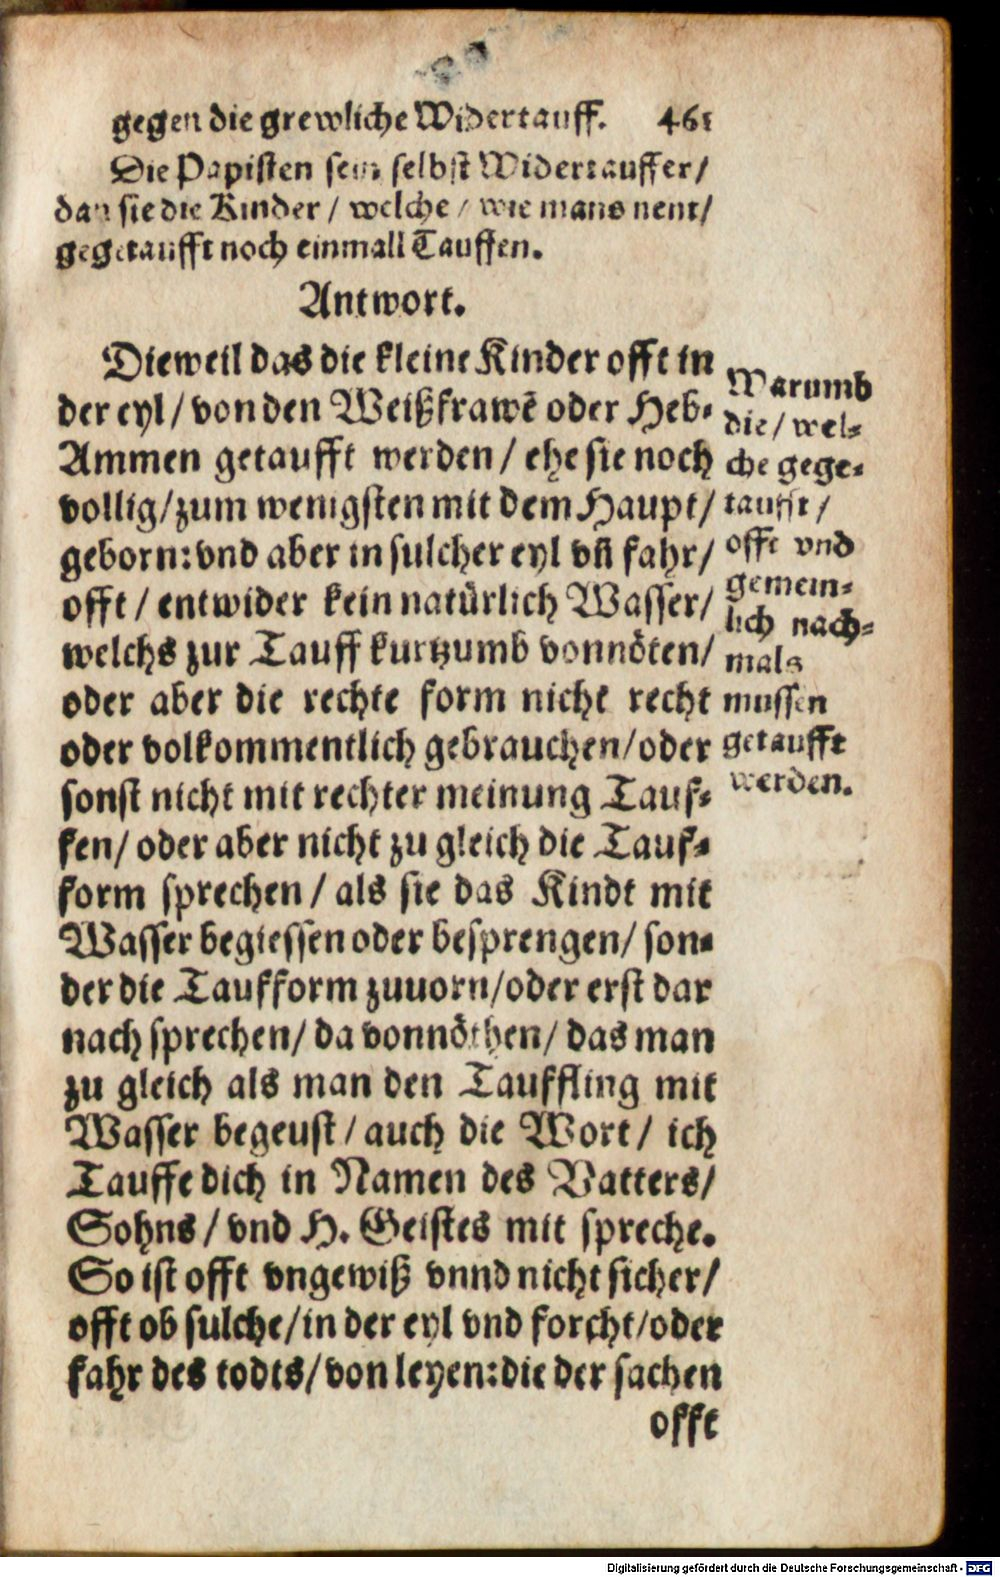 gegen die grewliche Widertauff. 461
Die Papisten sein selbst Widertauffer/
dan sie die Kinder / welche / wie mans nent/
gegetaufft noch einmall Tauffen.
Antwort.
Dieweil das die kleine Kinder offt in
der eyl / von den Weißfrawẽ oder Heb⸗
Ammen getaufft werden / ehe sie noch
vollig / zum wenigsten mit dem Haupt /
geborn: vnd aber in sulcher eyl vñ fahr /
offt / entwider kein natürlich Wasser /
welchs zur Tauff kurtzumb vonnöten /
oder aber die rechte form nicht recht
oder volkommentlich gebrauchen / oder
sonst nicht mit rechter meinung Tauf⸗
fen / oder aber nicht zu gleich die Tauf⸗
form sprechen / als sie das Kindt mit
Wasser begiessen oder besprengen / son⸗
der die Taufform zuuorn / oder erst dar
nach sprechen / da vonnöthen / das man
zu gleich als man den Tauffling mit
Wasser begeust / auch die Wort / ich
Tauffe dich in Namen des Vatters /
Sohns / vnd H. Geistes mit spreche.
So ist offt vngewiß vnnd nicht sicher /
offt ob sulche / in der eyl vnd forcht / oder
fahr des todts / von leyen: die der sachen
offt
Warumb
die / wel⸗
che gege⸗
taufft /
offt vnd
gemein⸗
lich nach⸗
mals
mussen
getaufft
werden.
Digitalisierung gefördert durch die Deutsche Forschungsgemeinschaft - DFG